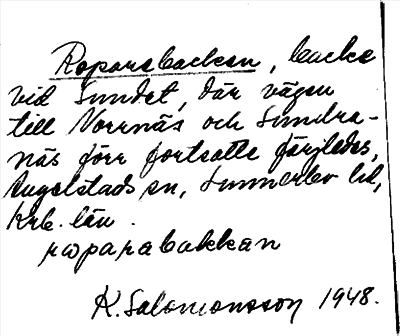 Roparebacken, backe
vid Sundet, där vägen
till Norrnäs och Sundra-
näs förr fortsatte färjledes,
Angelstads sn, Sunnerbo hd,
Krb. län.
rωparabakkan
K. Salomonsson 1948.